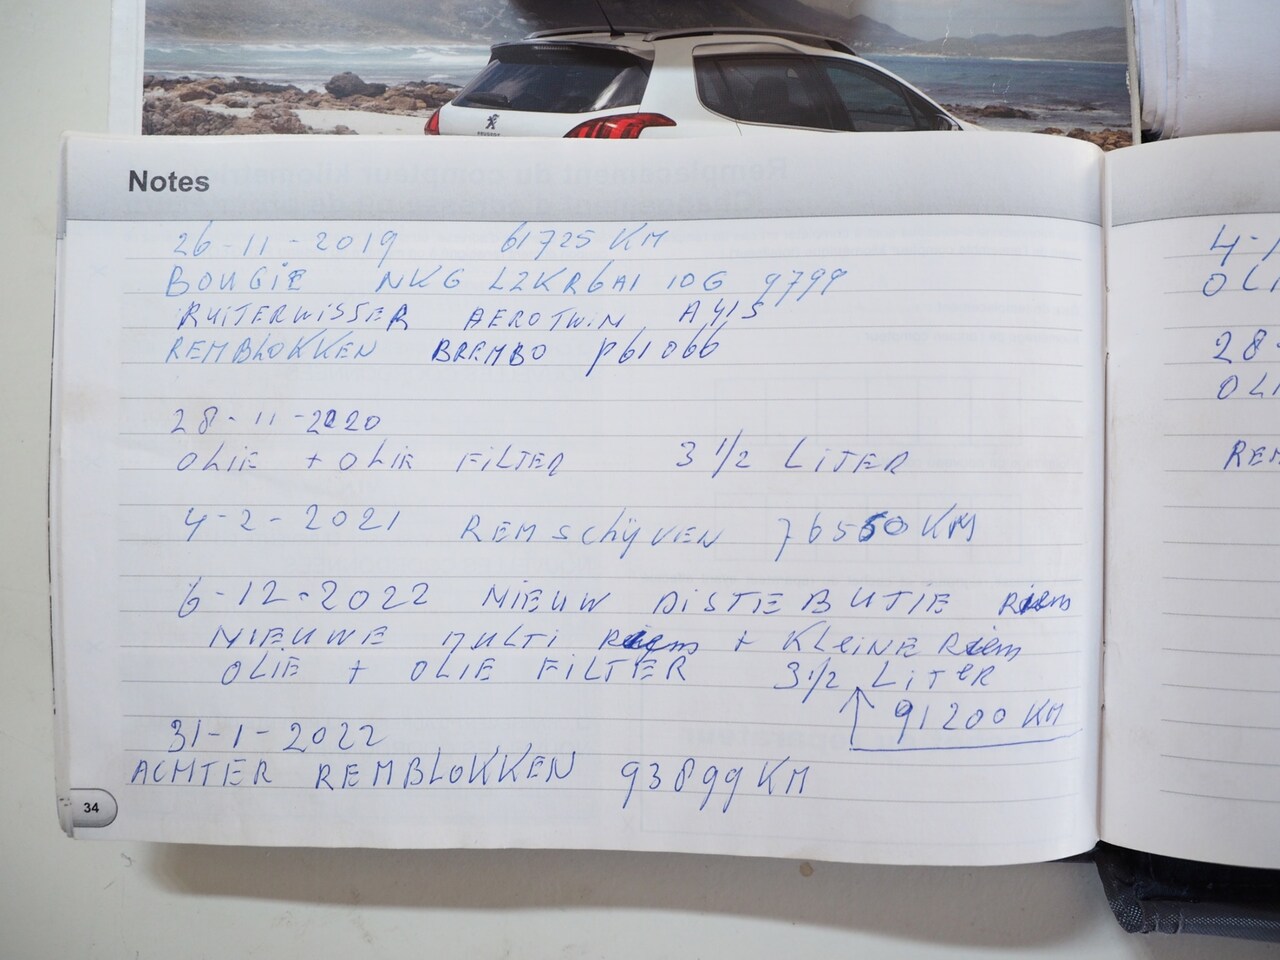 PEUGEOT
Notes
26-11-2019 61725 KM
BOUGIE NKG LZKR6AI 10G 9799
RUITERWISSER AEROTWIN A
REMBLOKKEN BREMBO P61066
28-11-2020
OLIE + OLIE FILTER 3 1/2 LITER
4-2-2021 REMSCHIJVEN 76550 KM
6-12-2022 NIEUW DISTEBUTIE Riem
NIEUWE MULTI Riem + KLEINE Riem
OLIE + OLIE FILTER 3 1/2 LITER
↑ 91200 KM
31-1-2022
ACHTER REMBLOKKEN 93899 KM
34
4-
OLI
28-
OLI
REM